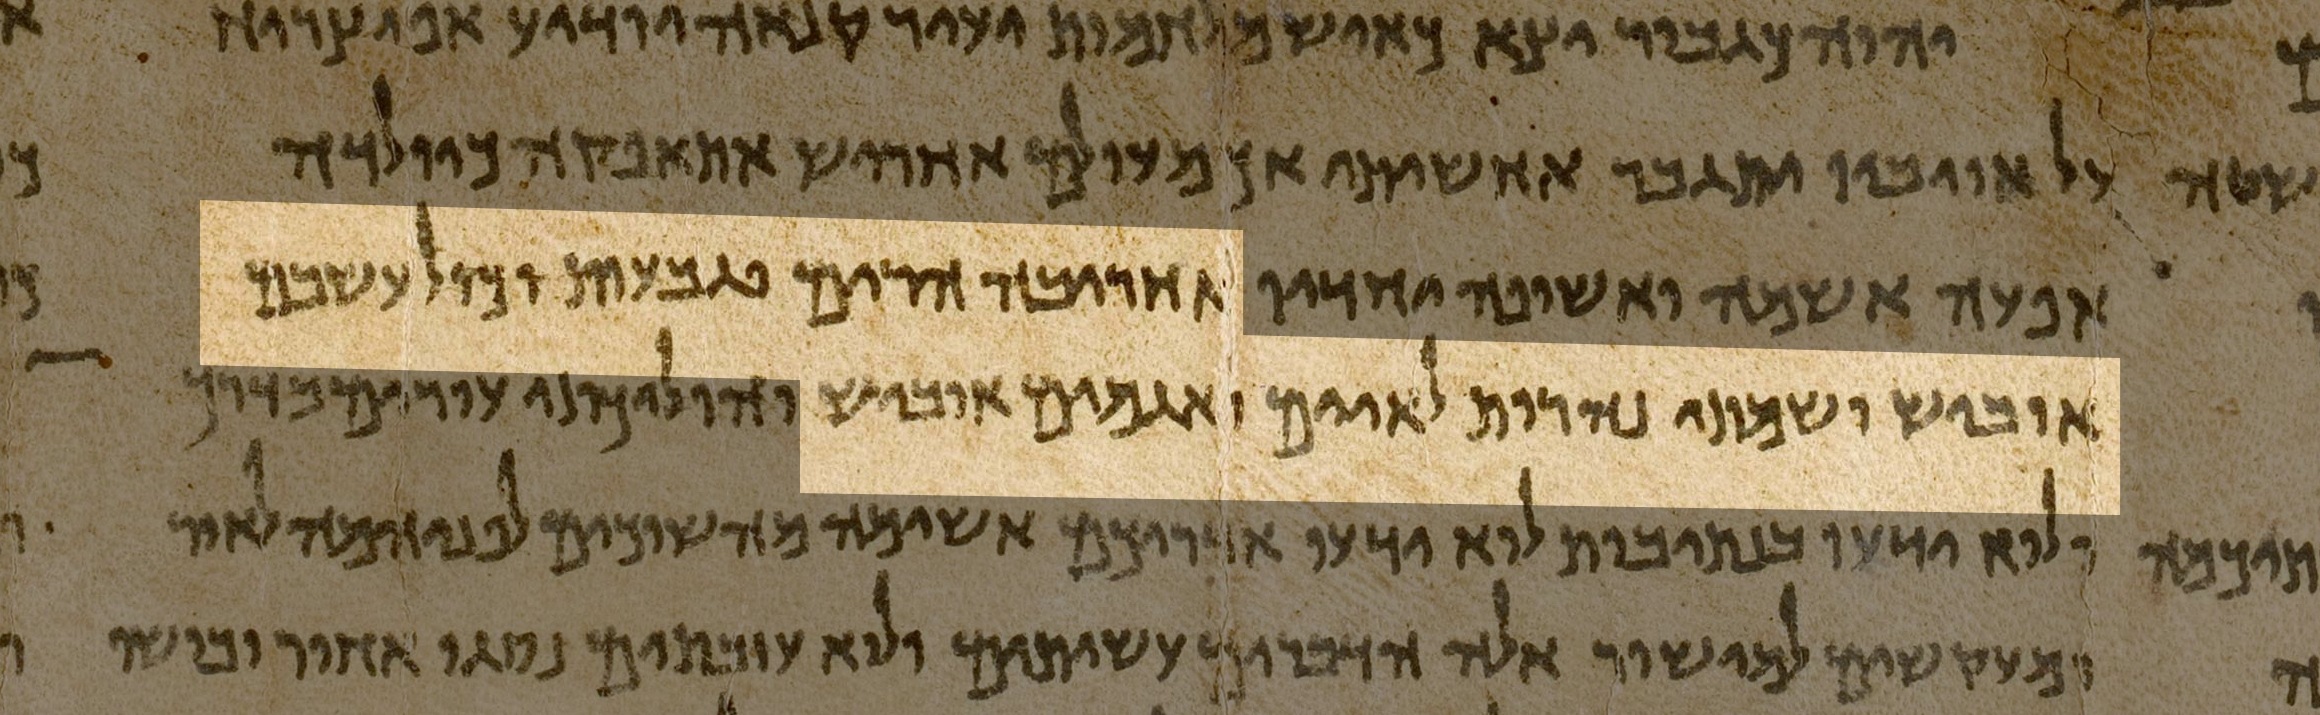 יהוה כגבור יצא כאיש מלחמות יעיר קנאה יודיע אפ יצריח
על אויביו יתגבר אחשיתי אך מעולם אחריש אתאפקה כיולדה
אפעה אשמה ואשופה יחדיו אחריבה הרים וגבעות וכול עשבם
אוביש ושמתי נהרות לאיים ואגמים אוביש והולכתי עורים בדרך
ולוא ידעו בנתיבות לוא ידעו אדריכם אשימה מחשוכים לפניהמה לאור
ומעקשים למישור אלה הדברים עשיתים ולא עזבתים נסוגו אחור יבושו